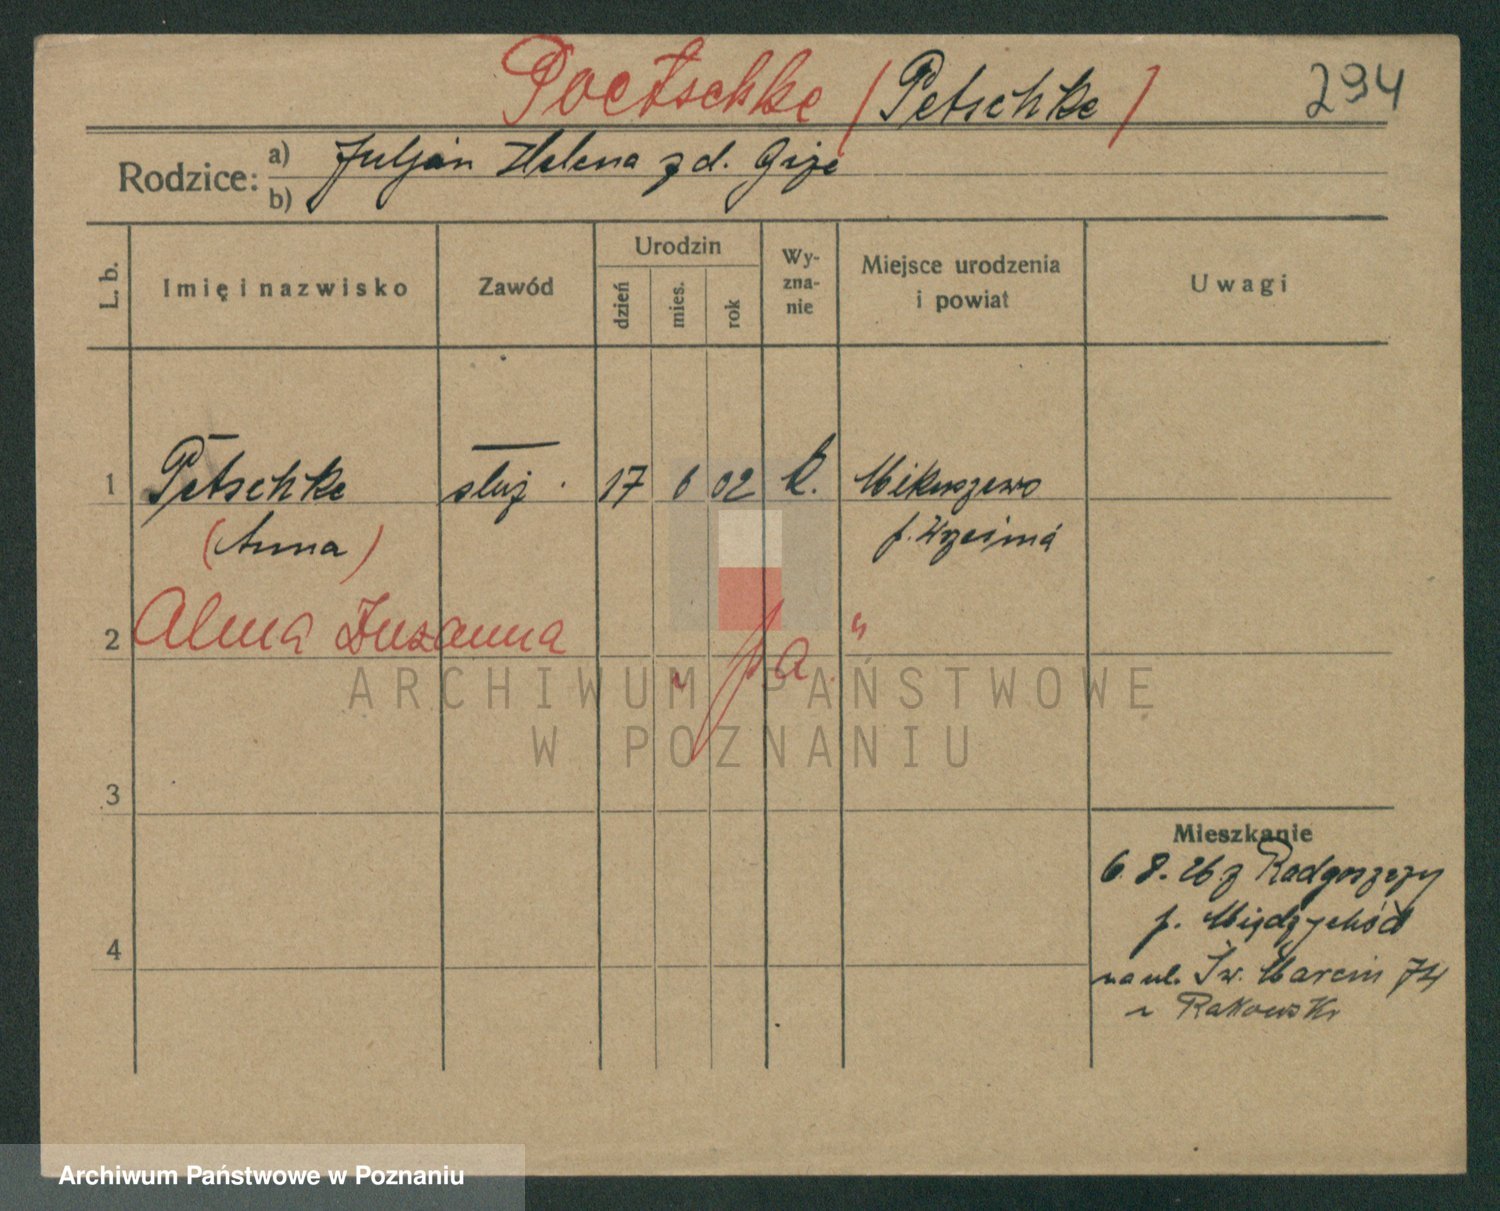 Poetschke (Petschke) 294
Rodzice: a) Juljan Helena z d. Gize
b)
L. b. Imię i nazwisko Zawód Urodzin dzień mies. rok Wy-zna-nie Miejsce urodzenia i powiat Uwagi
1 Petschke służ. 17 6 02 k. Mikuszewo
(Anna) p. Września
2 Alma Zuzanna "
ARCHIWUM PAŃSTWOWE
W POZNANIU
3
Mieszkanie
6.8.26 z Radgoszczy
p. Międzychód
4
na ul. Św. Marcin 74
Archiwum Państwowe w Poznaniu